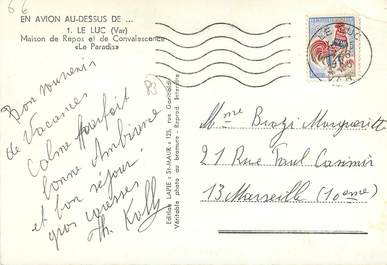 66
EN AVION AU-DESSUS DE ...
1. LE LUC (Var)
Maison de Repos et de Convalescence
«Le Paradis»
LE LUC
VAR
83
Bon souvenir
de Vacances
Calme Parfait
bonne Ambiance
et bon séjour.
gros baisers
Th. Kolly
Edition LAPIE - St-MAUR - 125, rue Garibaldi
Véritable photo au bromure - Reprod. interdite
Mme Brozi Marguerite
21 Rue Paul Casimir
13 Marseille (10ème)